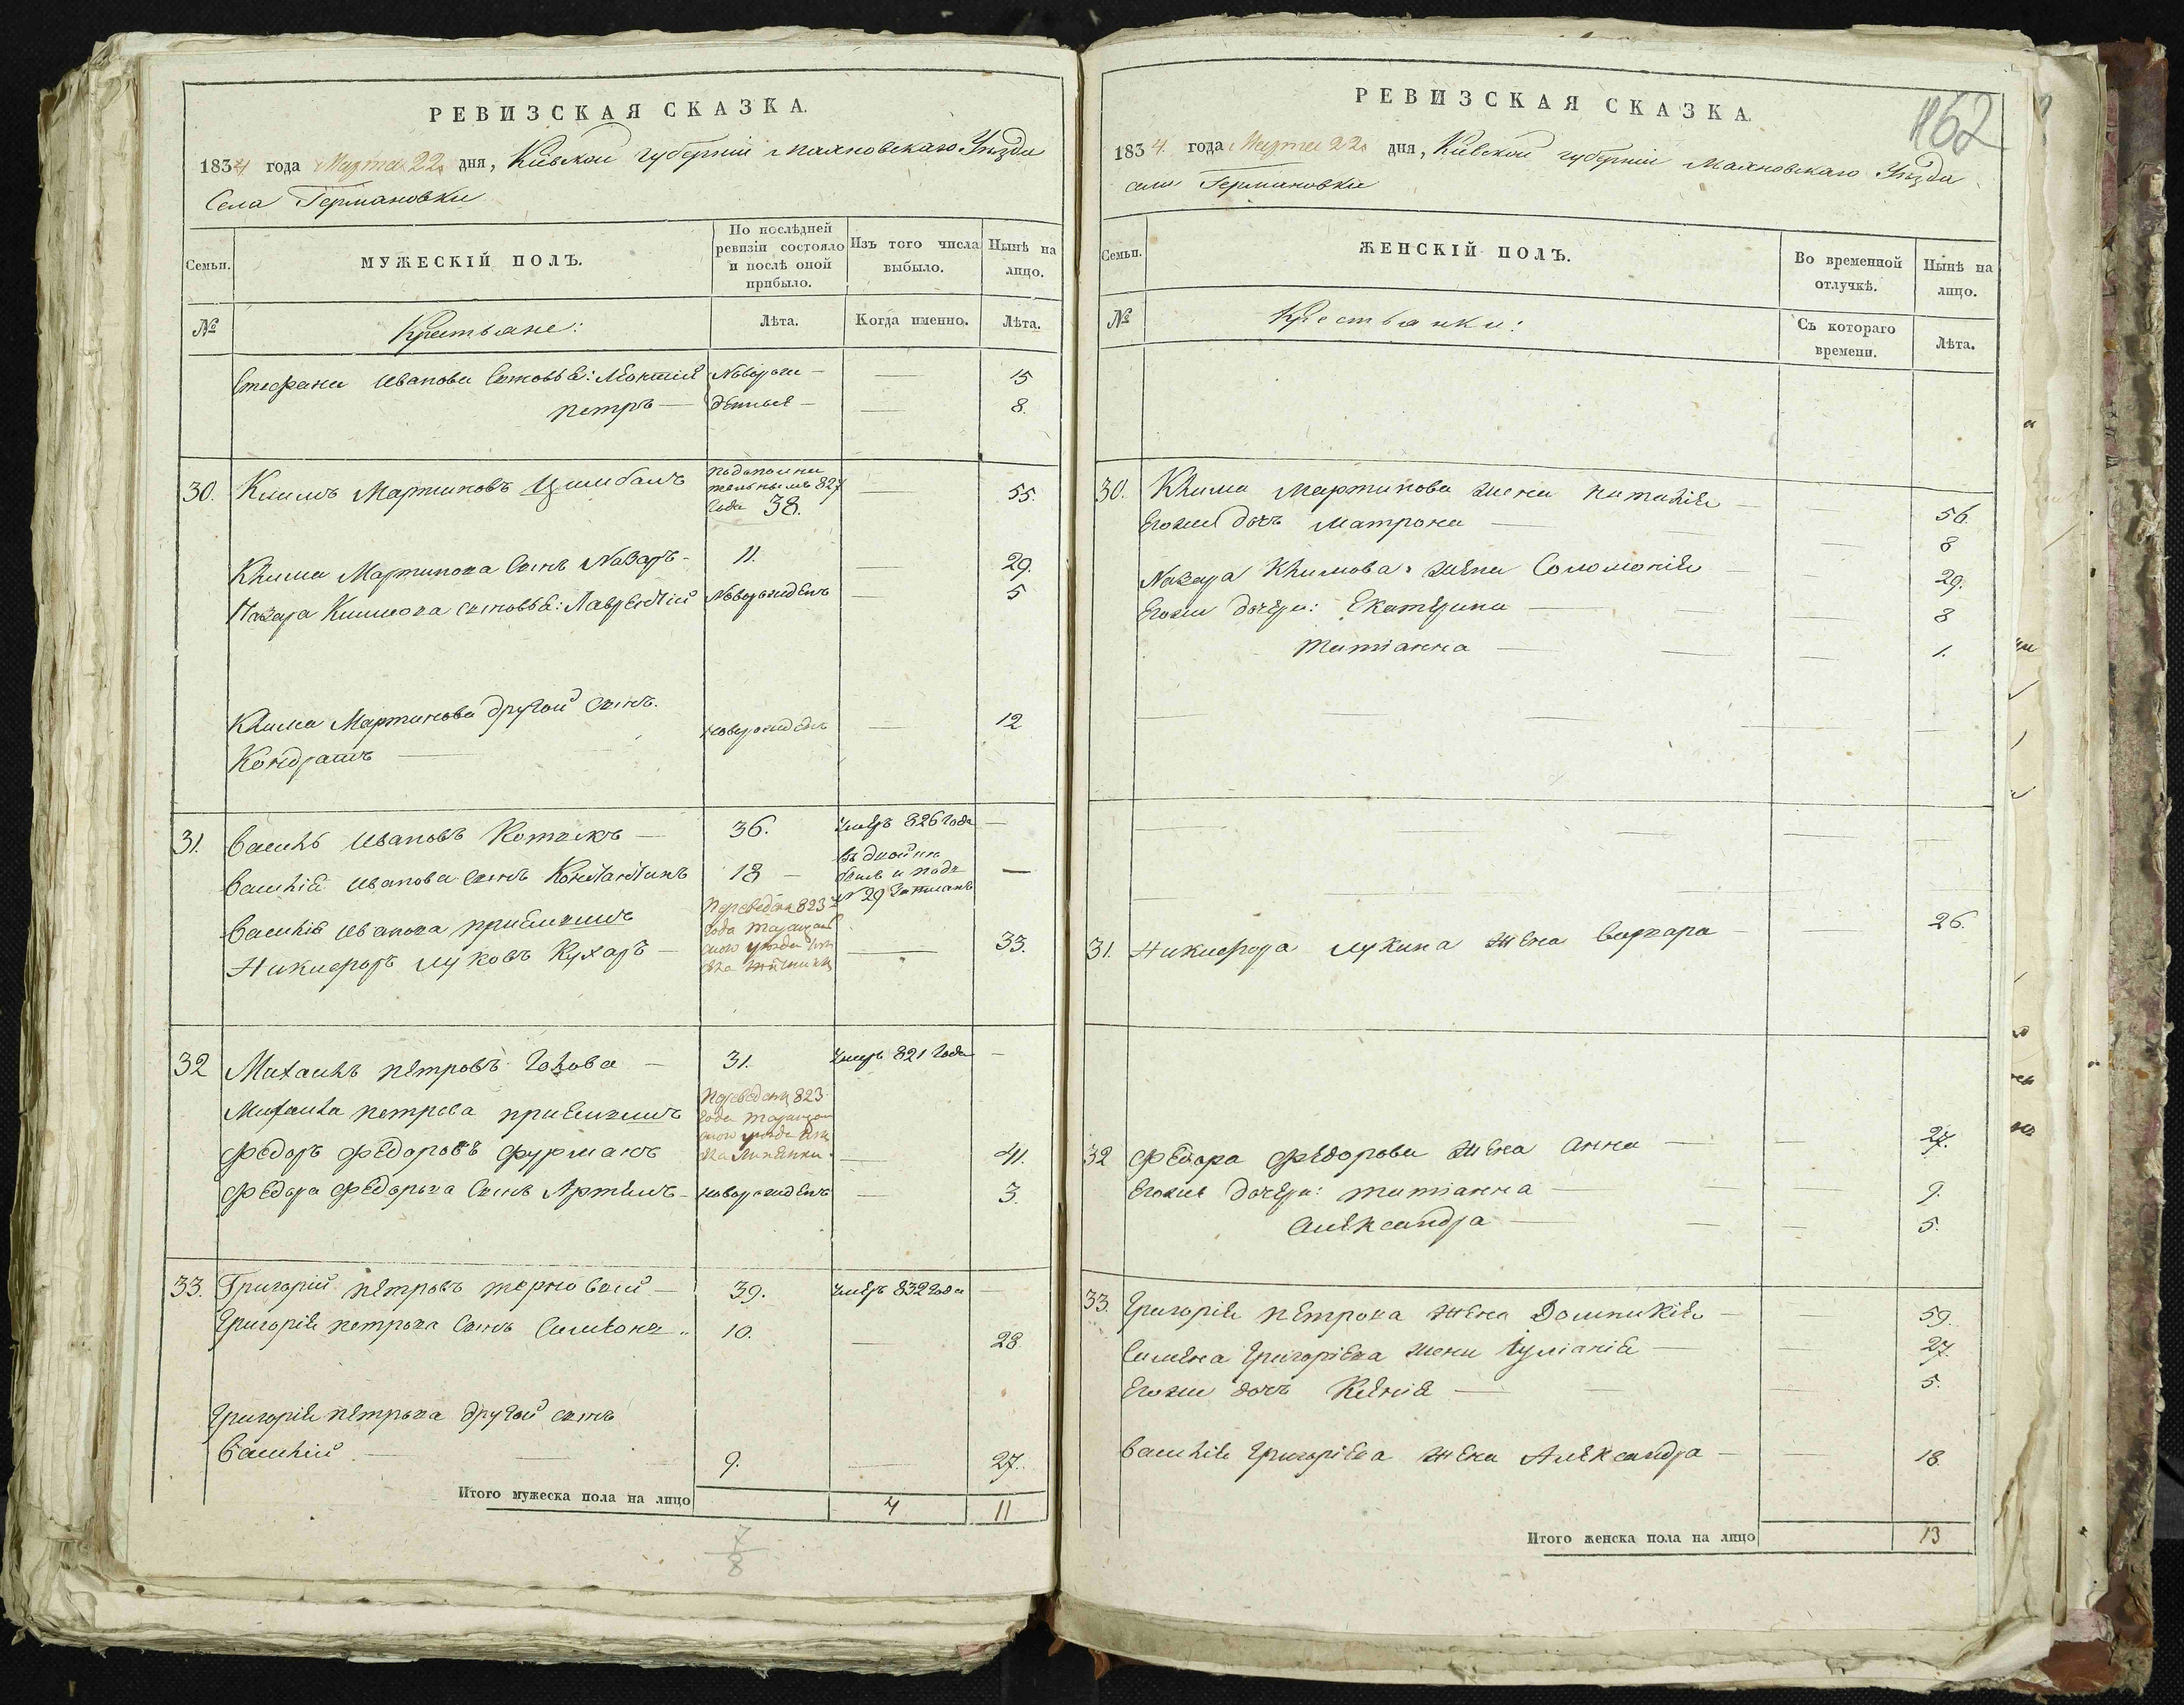 РЕВИЗСКАЯ СКАЗКА.
1834 года Марта 22 дня, Кіевской губерніи Махновскаго Уѣзда
Села Германовки
Семьи.
МУЖЕСКІЙ ПОЛЪ.
По послѣдней ревизіи состояло и послѣ оной прибыло.
Изъ того числа выбыло.
Нынѣ на лицо.
№
Крестьяне:
Лѣта.
Когда именно.
Лѣта.
Стефана Иванова сыновья: Леонтій Новорож 15
петръ — денные — 8.
30. Климъ Мартиновъ Цимбалъ подополни тельнымъ 827 года 38. — 55.
Клима Мартинова сынъ Назаръ - 11. — 29.
Назара Климова сыновья: Лаврентій новорожденъ — 5
Клима Мартинова другой сынъ
Кондратъ — новорожденъ — 12
31. Василь Ивановъ — 36. умеръ 826 года —
Василія Иванова сынъ Константинъ 18 — №29 —
Василія Иванова приемишъ переведенъ 823
Никифоръ Луковъ Кухаръ — года уѣзда — 33.
32 Михаилъ петровъ Голова — 31. умеръ 821 года —
Михаила петрова приемишъ переведенъ 823
Федоръ Федоровъ Фурманъ года уѣзда — 41.
Федора Федорова сынъ Артемъ - новорожденъ — 3.
33. Григорій петровъ терновой — 39. умеръ 832 года —
Григорія петрова сынъ Симеонъ 10. — 28.
Григорія петрова другой сынъ
Василій — 9. — 27.
Итого мужеска пола на лицо 4 11
7
8
РЕВИЗСКАЯ СКАЗКА.
162
1834 года Марта 22 дня, Кіевской губерніи Махновскаго Уѣзда
села Германовки
Семьи.
ЖЕНСКІЙ ПОЛЪ.
Во временной отлучкѣ.
Нынѣ на лицо.
№
Крестьянки:
Съ котораго времени.
Лѣта.
30. Клима Мартинова жена Наталія — 56.
Егоже дочь Матрона — 8
Назара Климова жена Соломонія — 29.
Егоже дочери: Екатерина — 8
Татіанна — 1.
31. Никифора Лукина жена Варвара — 26.
32 Федора Федорова жена Анна — 27.
Егоже дочери: татіанна — 9.
Александра — 5.
33. Григорія петрова жена Домникія — 59.
Симеона Григоріева жена Іуліанія — 27.
Егоже дочь Ксенія — 5.
Василія Григоріева жена Александра — 18.
Итого женска пола на лицо 13